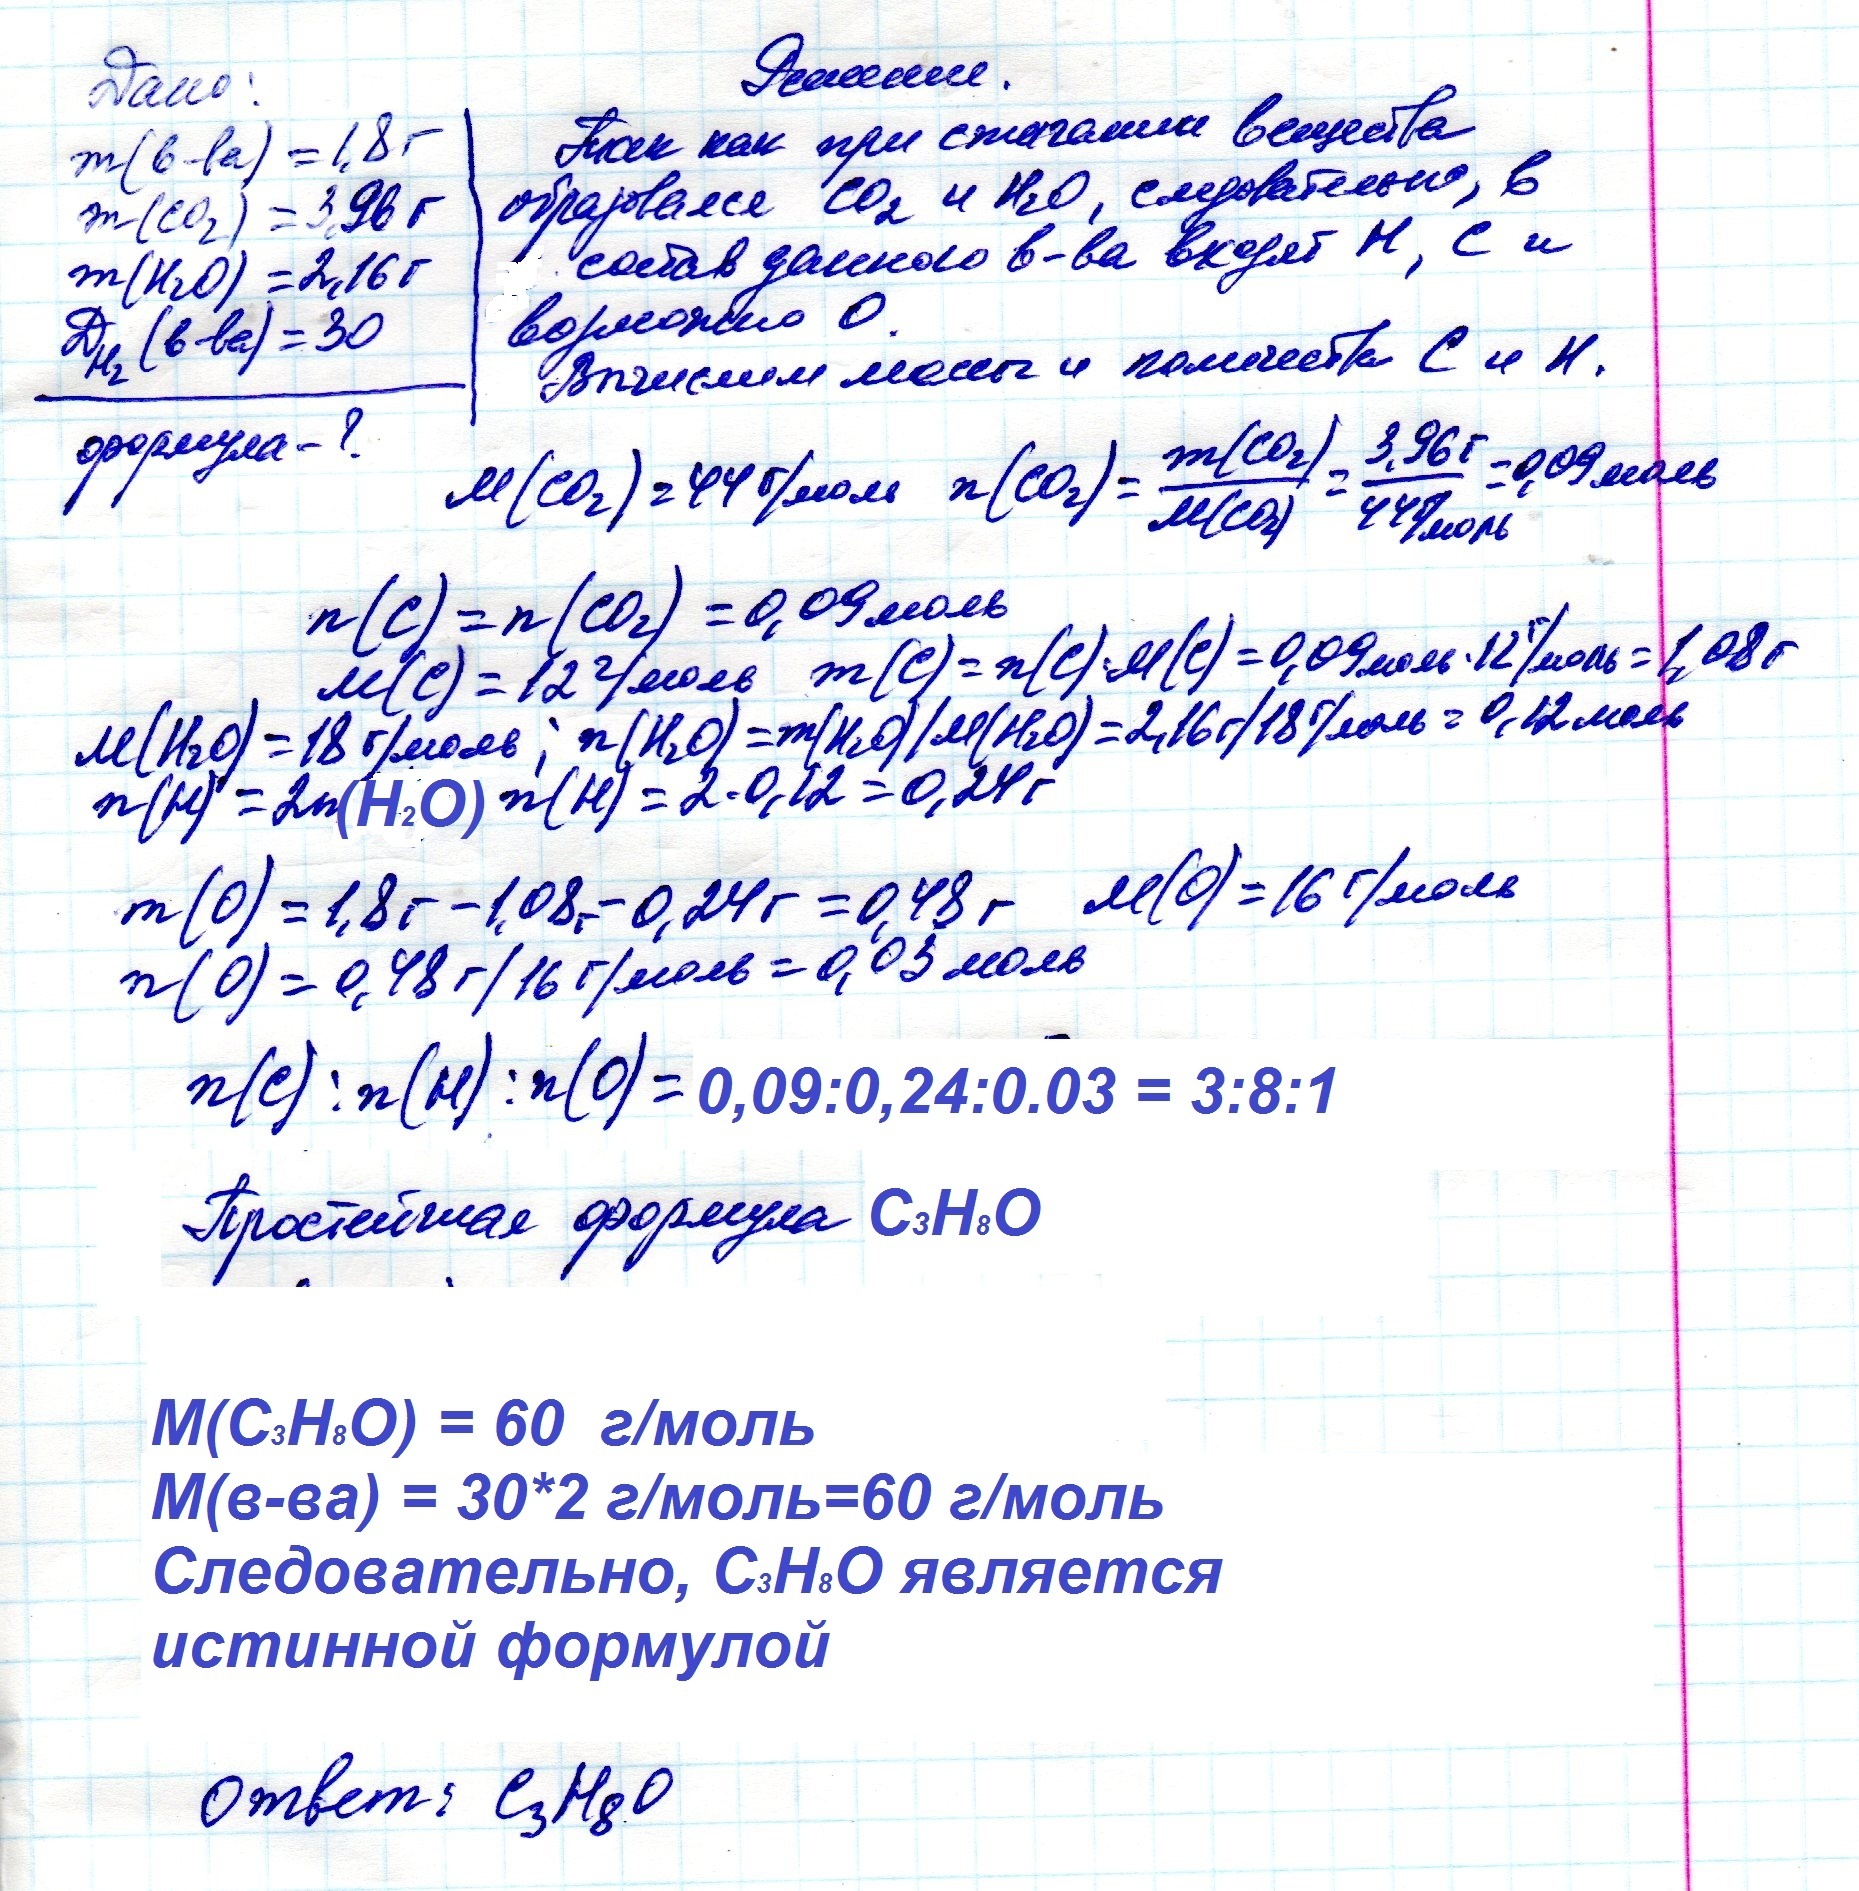 Дано:
m(в-ва) = 1,8 г
m(CO2) = 3,96 г
m(H2O) = 2,16 г
DH2(в-ва) = 30
формула - ?
Решение.
Так как при сжигании вещества
образовался CO2 и H2O, следовательно, в
состав данного в-ва входят H, C и
возможно O.
Вычислим массы и количества C и H.
M(CO2) = 44 г/моль n(CO2) = m(CO2)/M(CO2) = 3,96 г/44 г/моль = 0,09 моль
n(C) = n(CO2) = 0,09 моль
M(C) = 12 г/моль m(C) = n(C)·M(C) = 0,09 моль·12 г/моль = 1,08 г
M(H2O) = 18 г/моль; n(H2O) = m(H2O)/M(H2O) = 2,16 г/18 г/моль = 0,12 моль
n(H) = 2n(H2O) n(H) = 2·0,12 = 0,24 г
m(O) = 1,8 г - 1,08 г - 0,24 г = 0,48 г M(O) = 16 г/моль
n(O) = 0,48 г/16 г/моль = 0,03 моль
n(C) : n(H) : n(O) = 0,09:0,24:0.03 = 3:8:1
Простейшая формула C3H8O
M(C3H8O) = 60 г/моль
M(в-ва) = 30*2 г/моль=60 г/моль
Следовательно, C3H8O является
истинной формулой
Ответ: C3H8O